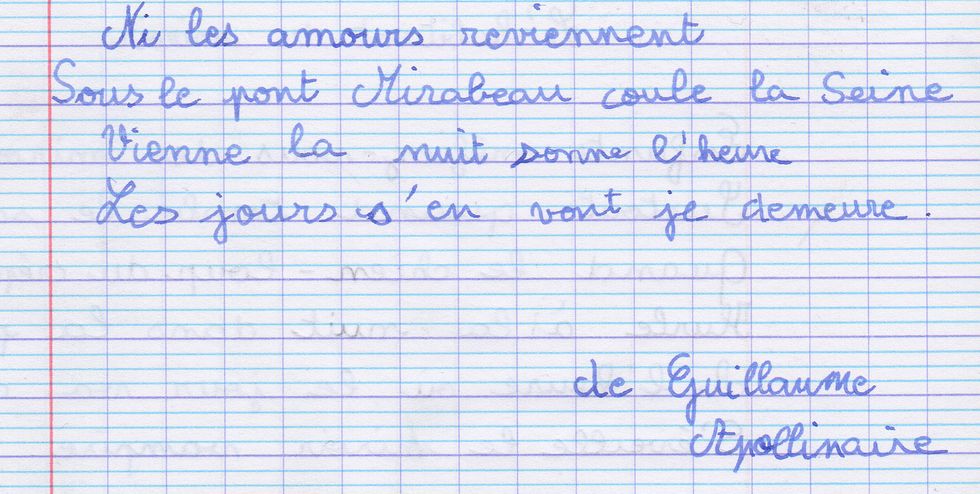 Ni les amours reviennent
Sous le pont Mirabeau coule la Seine
Vienne la nuit sonne l'heure
Les jours s'en vont je demeure.
de Guillaume
Apollinaire